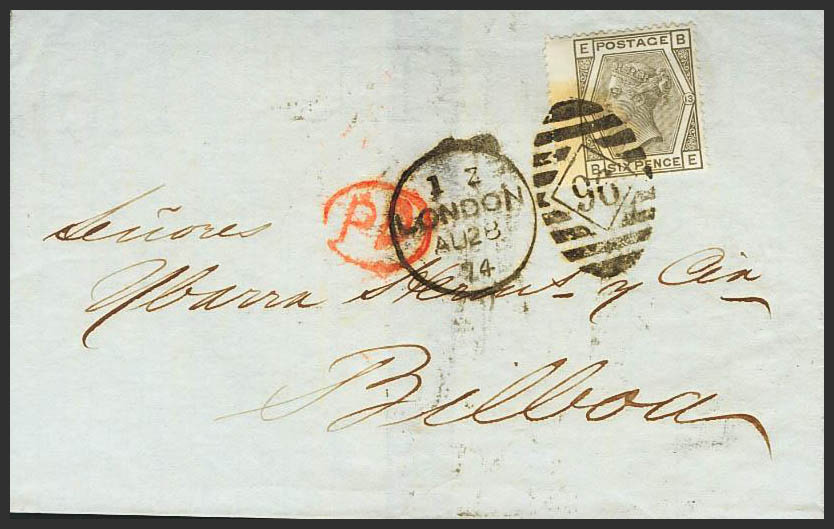 E POSTAGE B
13
B SIX PENCE E
96
1 Z
LONDON
AU 28
74
PD
Señores
Ybarra Hermos y Cia
Bilboa